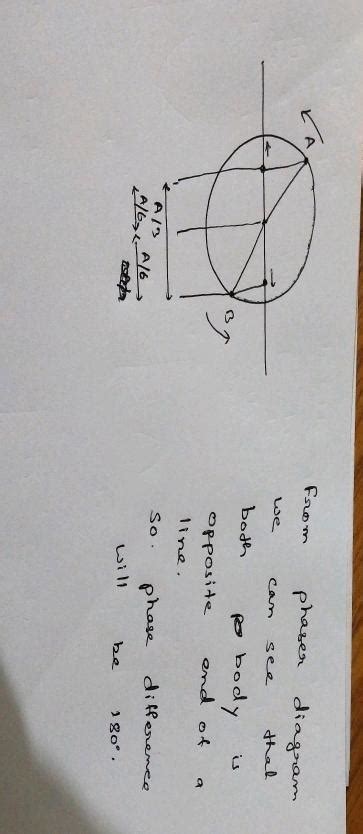 A
B
A/3
A/6
A/6
From phaser diagram
we can see that
both body is
opposite end of a
line.
So. phase difference
will be 180°.